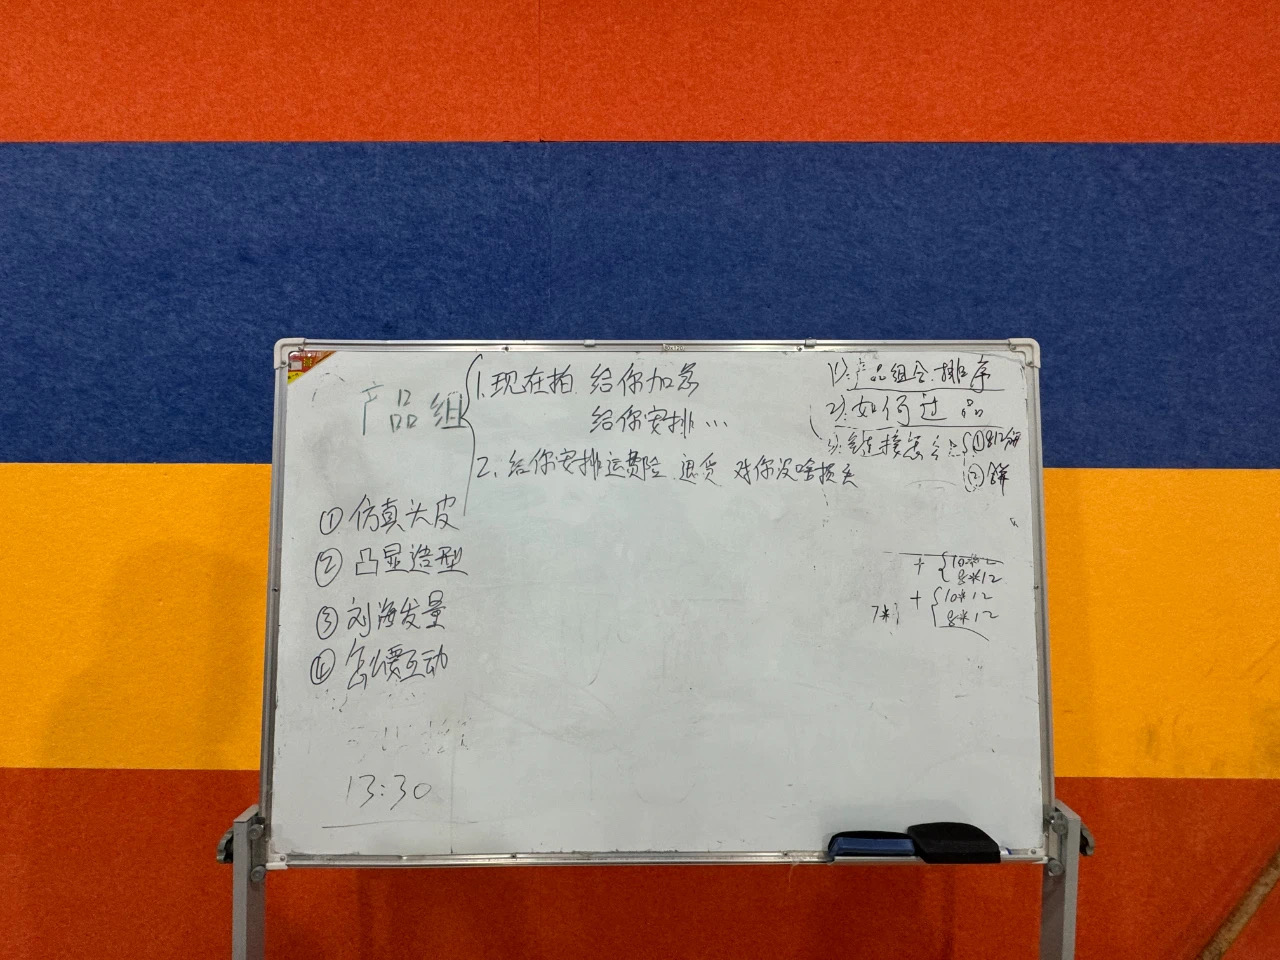 产品组
1. 现在拍. 给你加急
给你安排…
2. 给你安排运费险 退货 对你没啥损失
① 仿真头皮
② 凸显造型
③ 刘海发量
④ 怎么要互动
13:30
1) 产品组合.排序
2) 如何过品
3) 链接怎么
①
②
+ 10*12
8*12
+ 10*12
8*12
7*